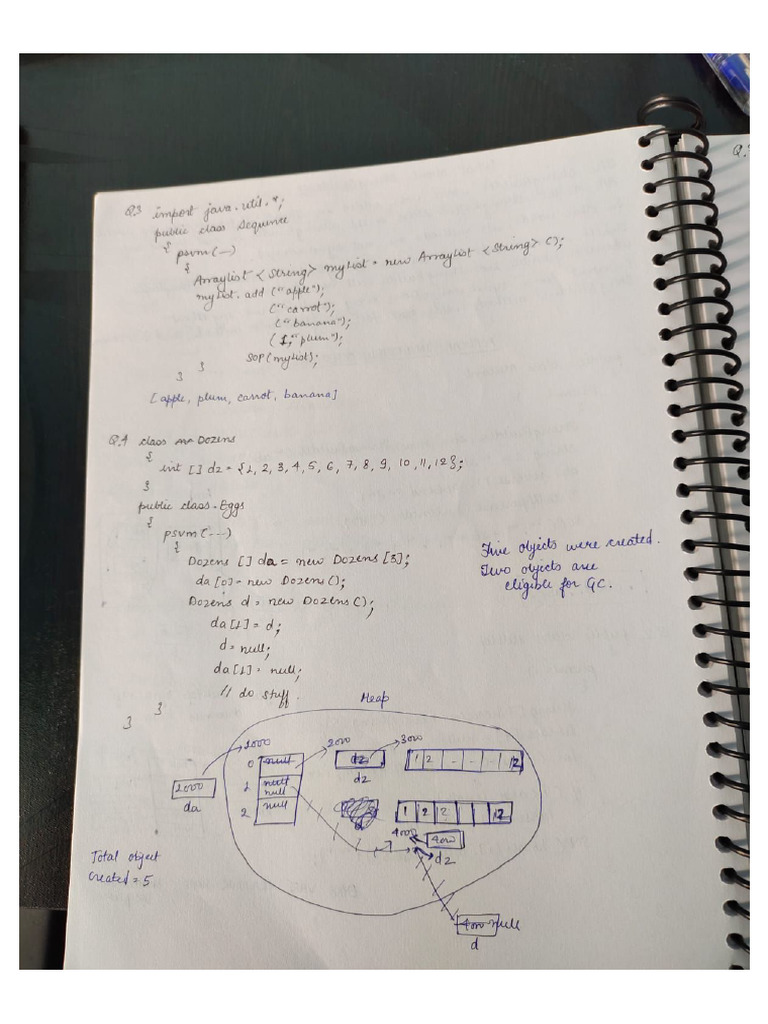 Q.3 import java.util.*;
public class Sequence
{ psvm(—)
{
ArrayList <String> mylist = new ArrayList <String> ();
mylist.add ("apple");
("carrot");
("banana");
(1,"plum");
SOP(mylist);
}
}
[apple, plum, carrot, banana]
Q.4 class Dozens
{
int [] dz = {1, 2, 3, 4, 5, 6, 7, 8, 9, 10, 11, 12};
}
public class Eggs
{
psvm(...)
{
Dozens [] da = new Dozens [3];
da [0] = new Dozens ();
Dozens d = new Dozens ();
da[1] = d;
d = null;
da[1] = null;
// do stuff.
}
}
Five objects were created.
Two objects are
eligible for GC.
Heap
1000 2000 3000
0 null dz 1 2 - - - 12
2000 1 null dz
da null
2 null 1 2 2 12
4000 400
dz
Total object
created = 5
400 null
d
Q.